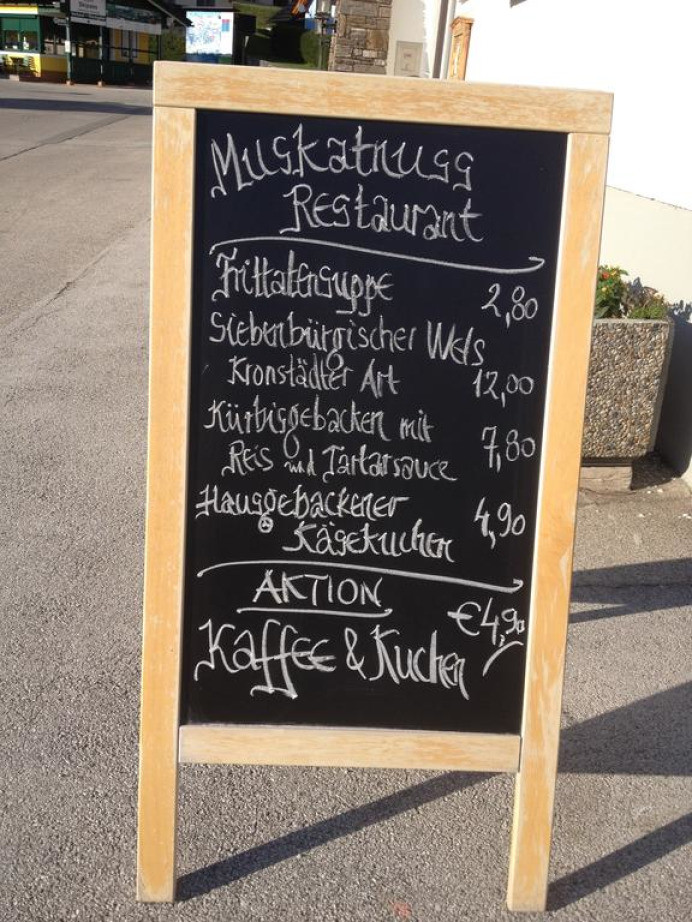 Muskatnuss
Restaurant
Frittatensuppe 2,80
Siebenbürgischer Wels
Kronstädter Art 12,00
Kürbisgebacken mit
Reis und Tartarsauce 7,80
Hausgebackener
Käsekuchen 4,90
AKTION
Kaffee & Kuchen €4,90